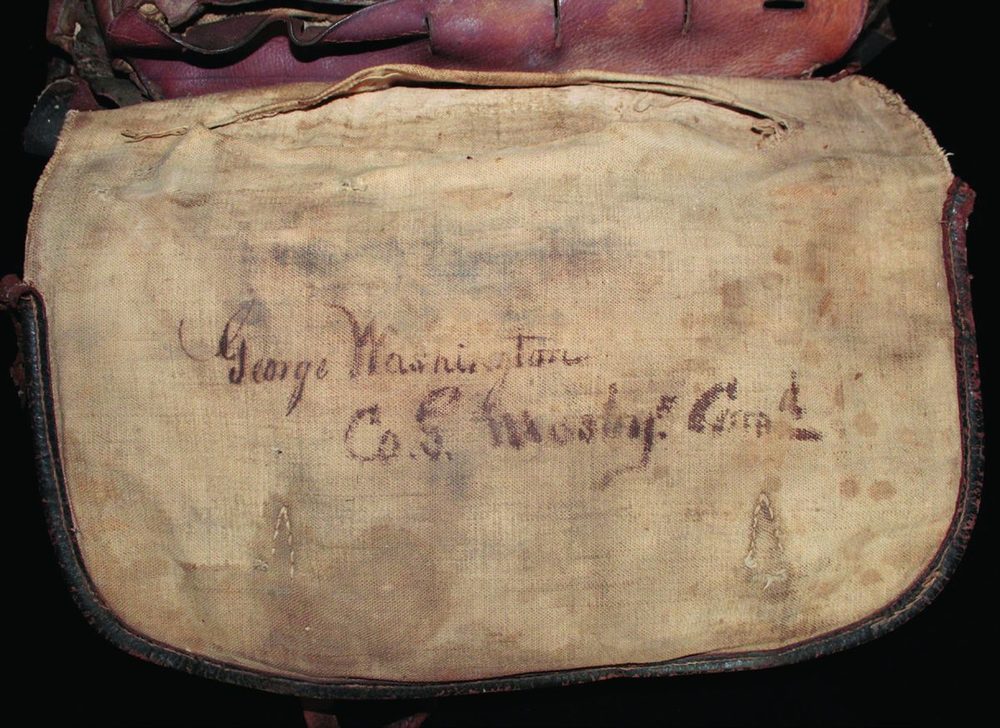 George Washington
Co. S. Mosby's Comd